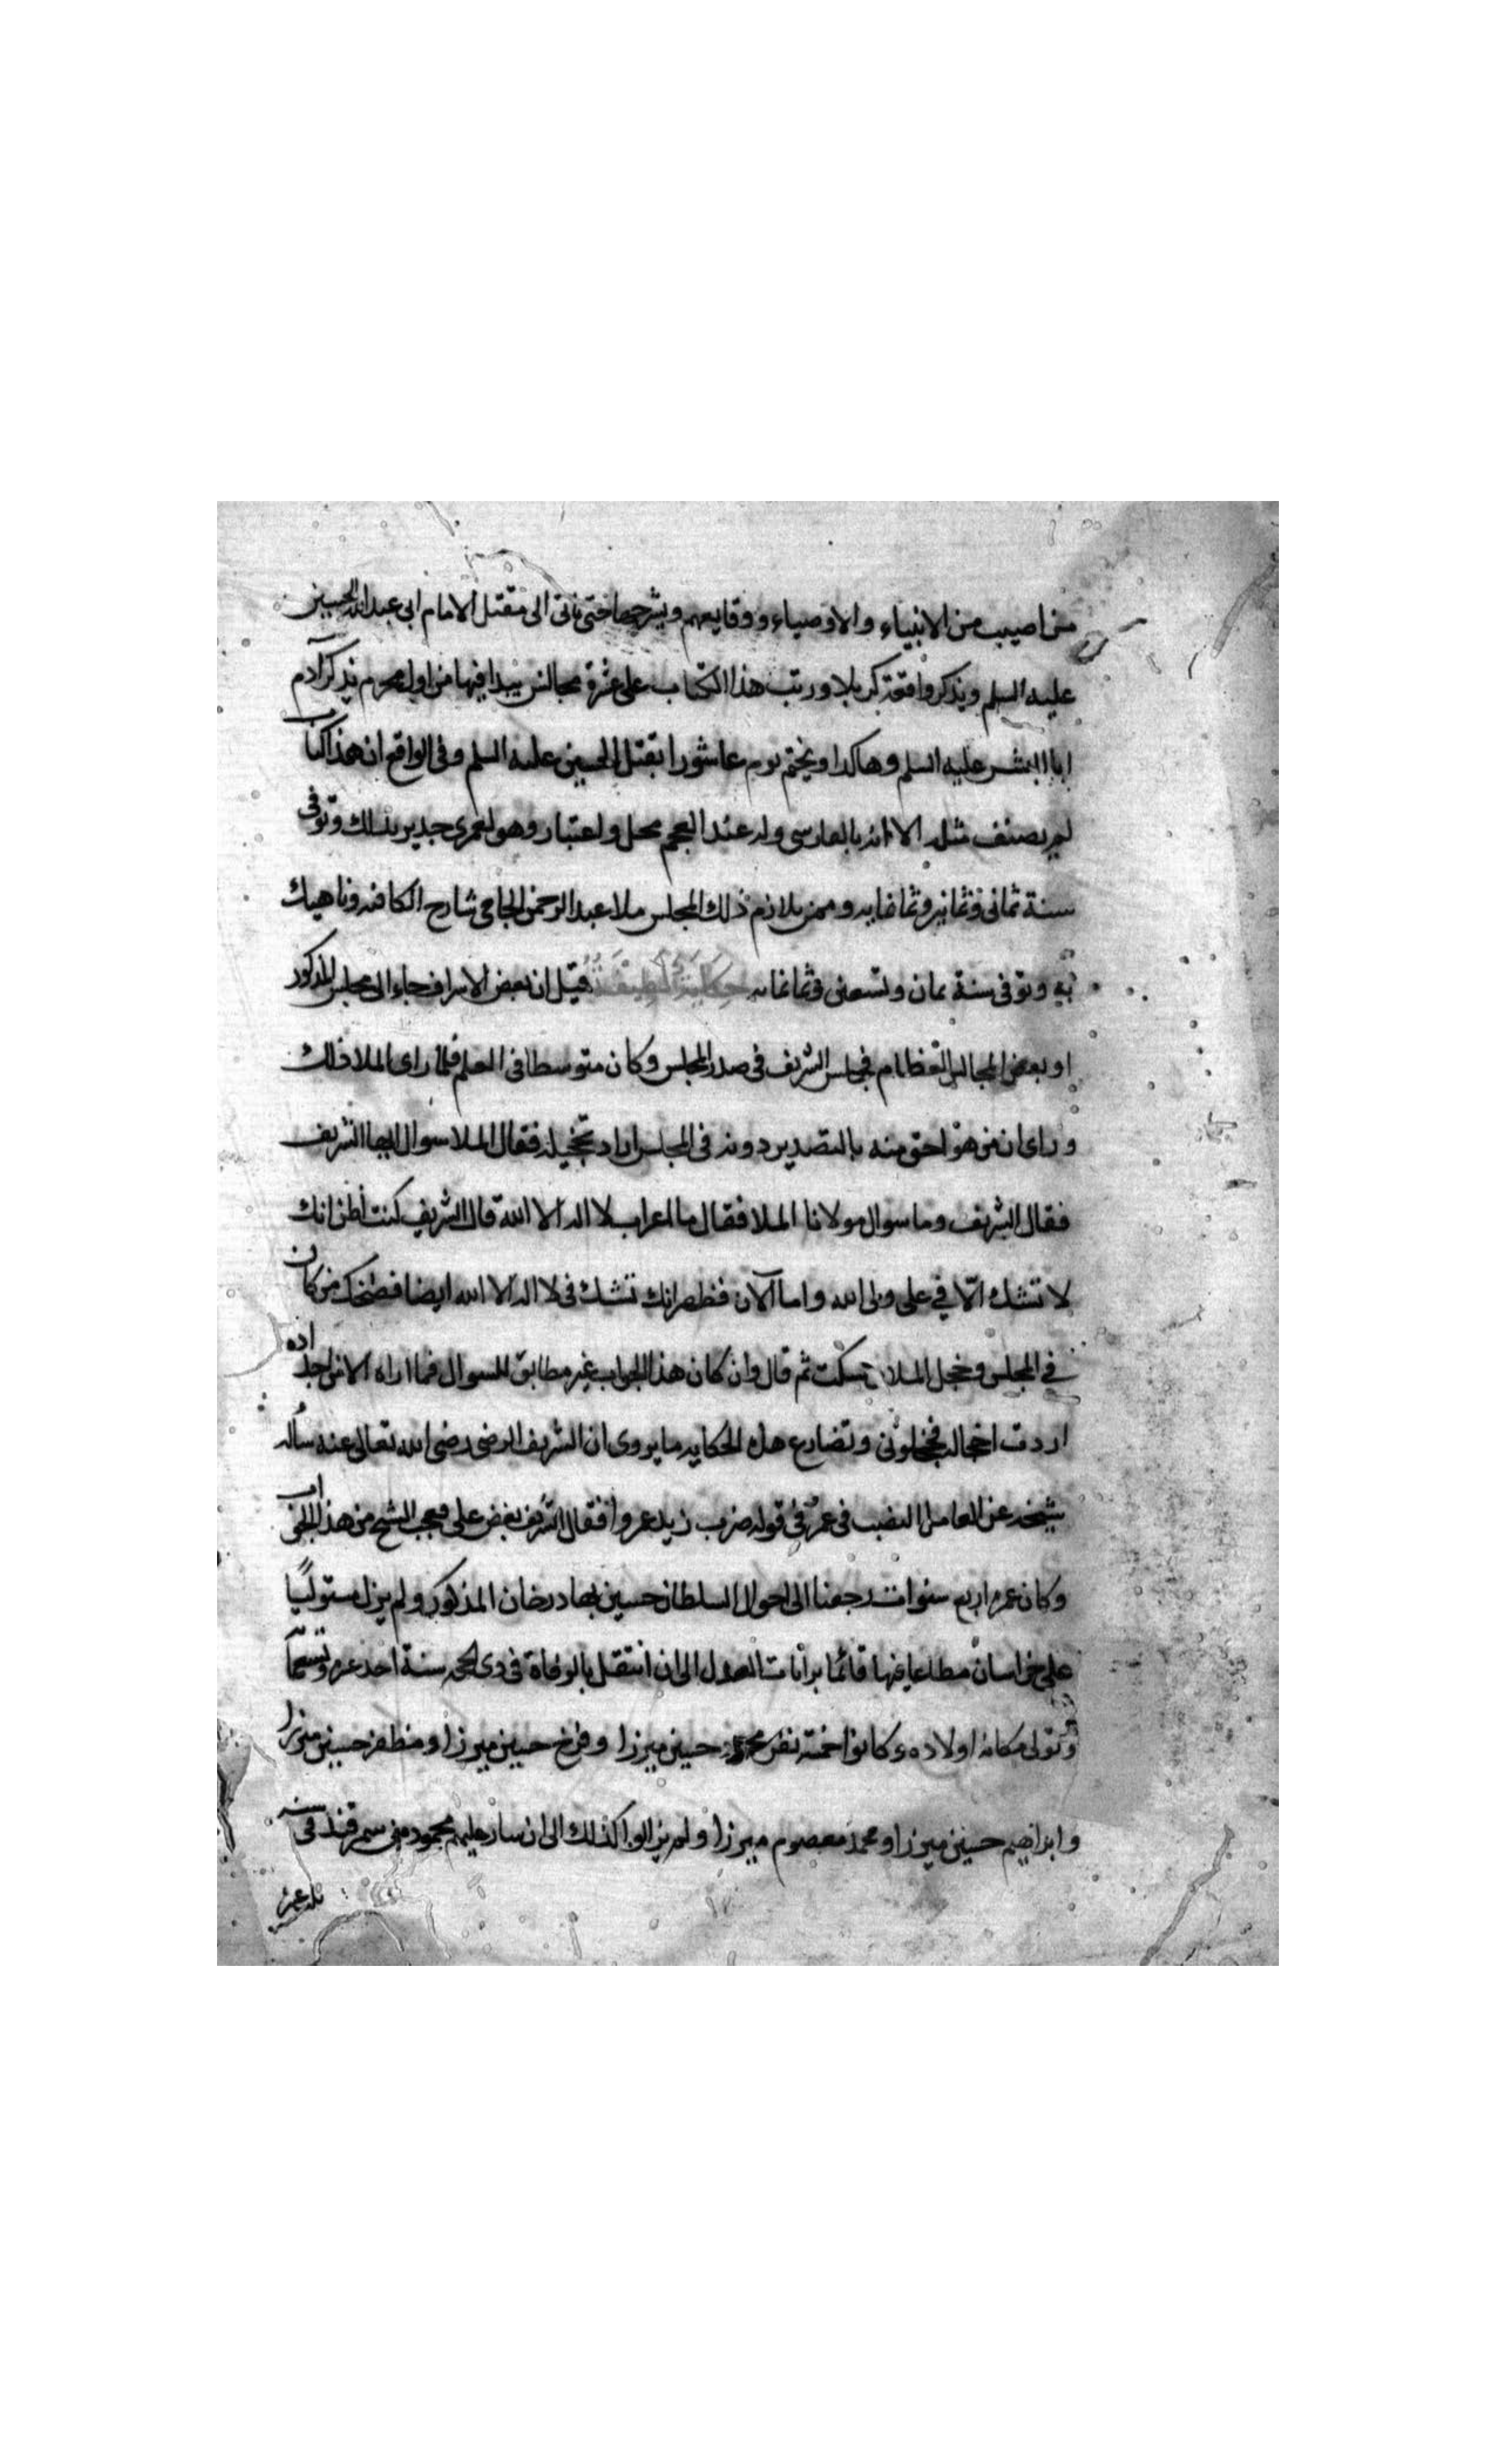 من اصيب من الانبياء والاوصياء ووقايعهم ويشرحها حتى ياتى الى مقتل الامام ابى عبد الله الحسين
عليه السلم ويذكر واقعة كربلا ورتب هذا الكتاب على عشرة مجالس يبدا فيها من اول محرم يذكر آدم
ابا البشر عليه السلم وهاكدا ويختم يوم عاشورا بقتل الحسين عليه السلم وفى الواقع ان هذا كتاب
لم يصنف مثله الا انه بالفارسى وله عند العجم محل واعتبار وهو لعمرى جدير بذلك وتوفى
سنة ثمانى وثمانين وثمانمايه وممن يلازم ذلك المجلس ملا عبد الرحمن الجامى شارح الكافيه وناهيك
به وتوفى سنة ثمان وتسعين وثمانمايه حكاية لطيفة قيل ان بعض الاشراف جاء الى مجلس المذكور
او بعض المجالس العظام فجلس الشريف فى صدر المجلس وكان متوسطا فى العلم فلما راى الملا ذلك
وراى ان من هو احق منه بالتصدير دونه فى المجلس اراد تخجيله فقال الملا سوال ايها الشريف
فقال الشريف وما سوال مولانا الملا فقال ما اعراب لا اله الا الله قال الشريف كنت أظن انك
لا تشك الّا في على ولى الله واما الآن فظهر انك تشك فى لا اله الا الله ايضا فضحك من كان
في المجلس وخجل الملا سكت ثم قال وان كان هذا الجواب غير مطابق للسوال فما اراه الا من اجداده
اردت اخجاله فخجلونى وتضارع هذه الحكايه ما يروى ان الشريف الرضى رضى الله تعالى عنه سأله
شيخه عن العامل النصب فى عمرو في قوله ضرب زيد عمروا فقال الشريف بغض على فعجب الشيخ من هذا الجواب
وكان عمره اربع سنوات رجعنا الى احوال السلطان حسين بهادر خان المذكور ولم يزل مستوليًا
على خراسان مطاعا فيها قائما العدل الى ان انتقل بالوفاة فى دى لحجه سنة احد عشر وتسعمآ
وتولى مكانه اولاده وكانوا خمسة نفر حسين ميرزا وفرخ حسين ميرزا ومظفر حسين ميرزا
وابراهيم حسين ميرزا ومحمد معصوم ميرزا ولم يزالوا كذلك الى ان سار عليهم محمود من سمرقند فى سنه